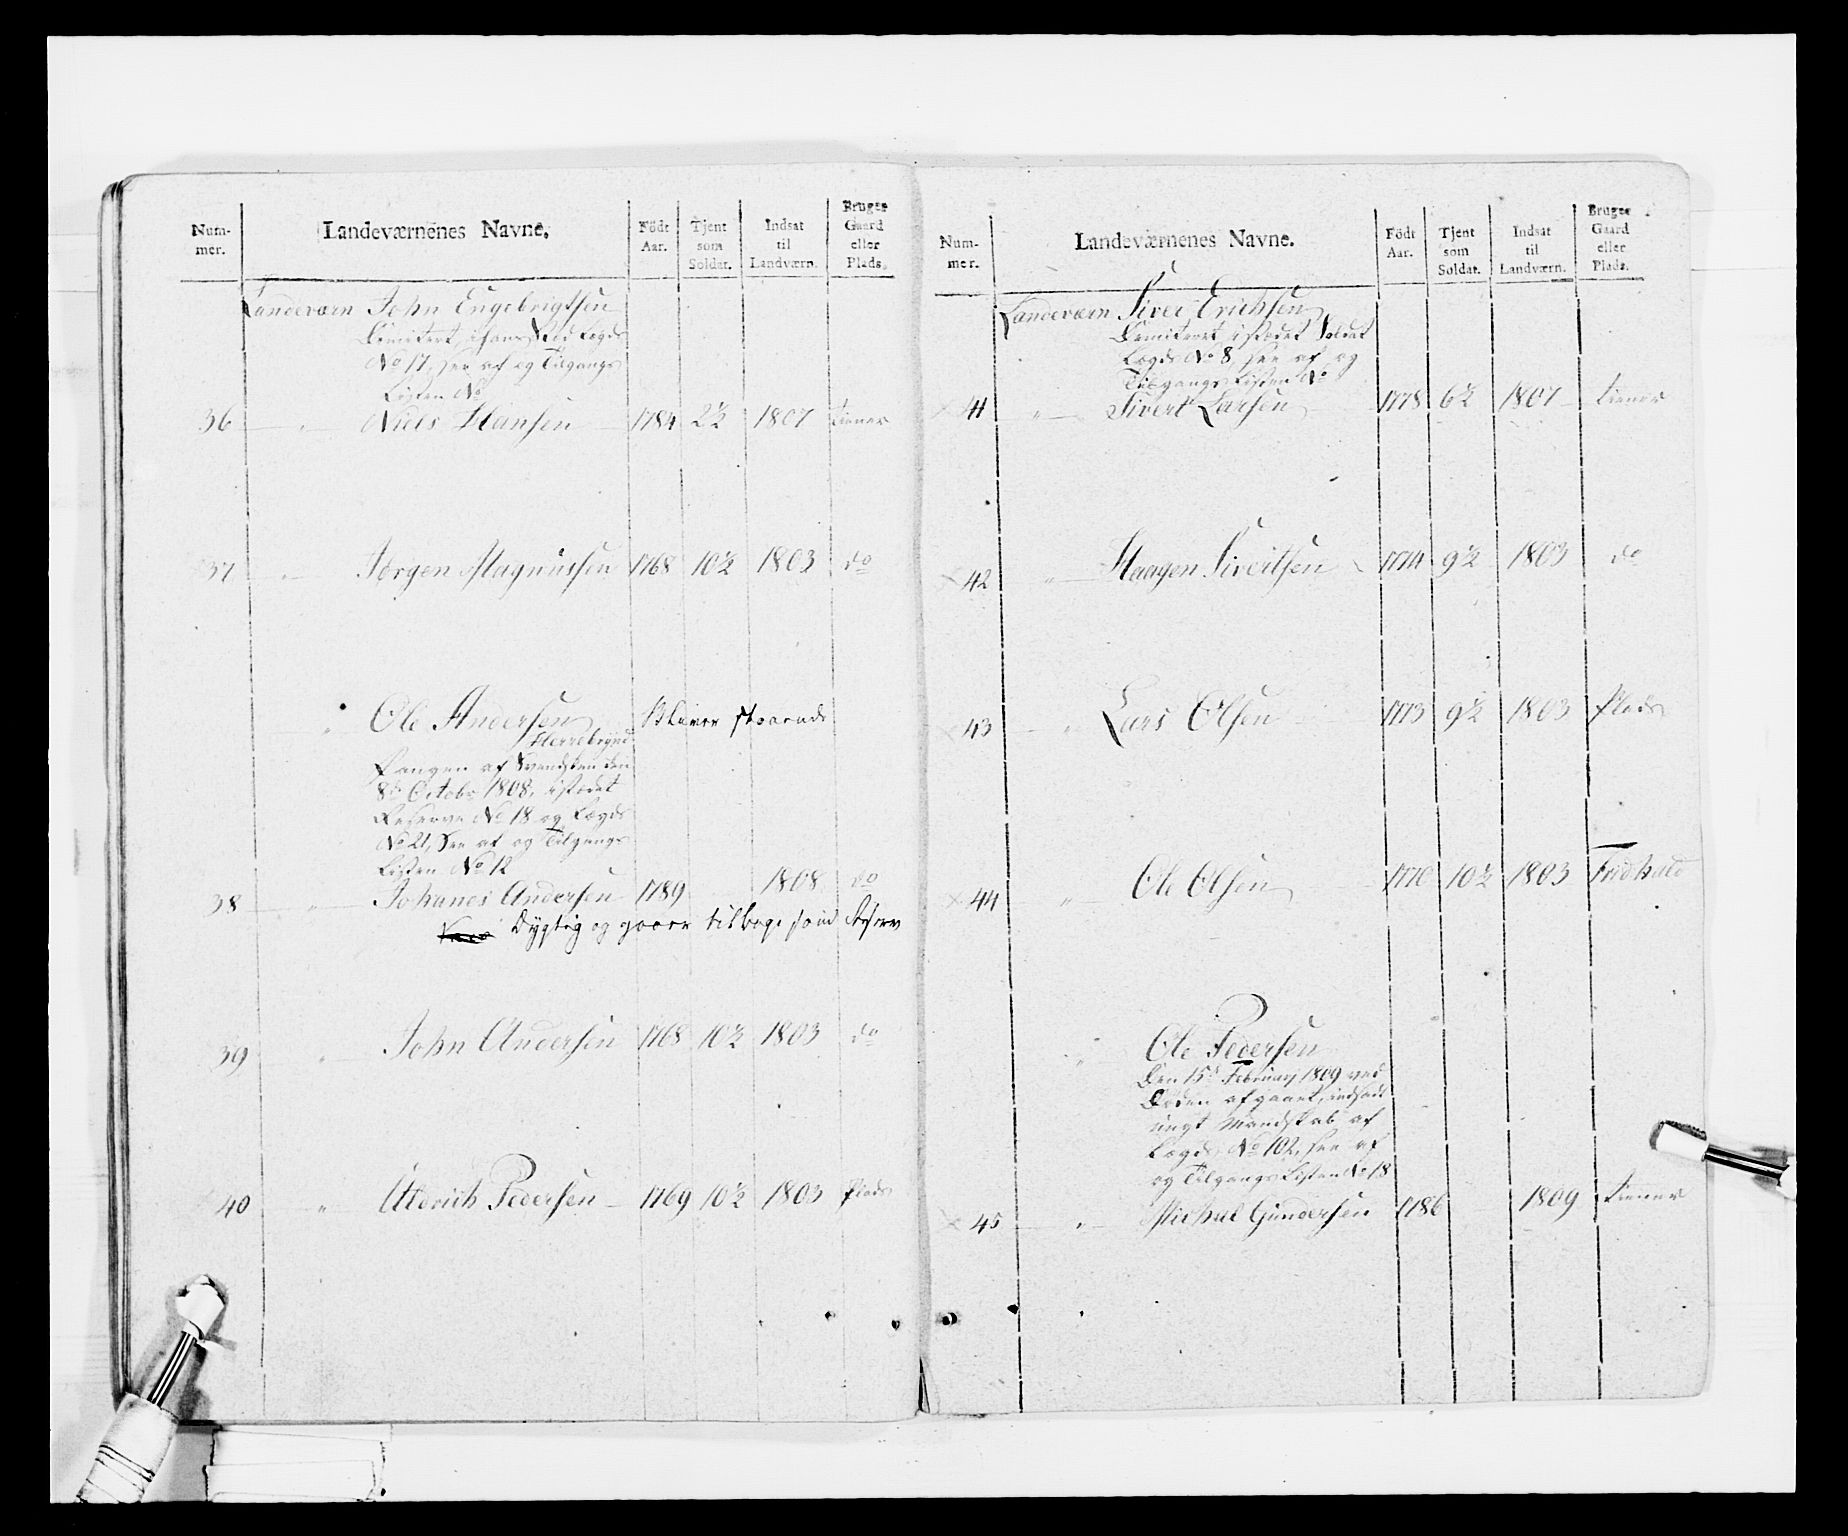 Num-
mer.
Landeværnenes Navne.
Født
Aar.
Tjent
som
Soldat.
Indsat
til
Landværn.
Bruger
Gaard
eller
Plads.
Landeværn John Engebrigtsen
Dimitert,
No 17, see af og Tilgangs
Listen No
36 " Niels Hansen 1784 2½ 1807 tiener
37 " Jørgen Magnussen 1768 10½ 1803 do
" Ole Andersen Bliver staaende
fangen af Svendsken den
8de Octobr 1808, istædet
Reserve No 18 og Lægds
No 21, See af og Tilgangs
Listen No 12
38 " Johanes Andersen 1789 1808 do
Dygtig og gaaer tilbage som Reserv
39 " John Andersen 1768 10½ 1803 do
40 " Uldrich Pedersen 1769 10½ 1803 Plads
Num-
mer.
Landeværnenes Navne.
Født
Aar.
Tjent
som
Soldat.
Indsat
til
Landværn.
Bruger
Gaard
eller
Plads.
Landeværn Siver Erichsen
Dimiteret, istædet Soldat
Lægds No 8, see af og
Tilgangs Listen No
41 " Sivert Larsen 1778 6½ 1807 tiener
42 " Haagen Sivertsen 1774 9½ 1803 do
43 " Lars Olsen 1773 9½ 1803 Plads
44 " Ole Olsen 1770 10½ 1803 Fridhald
" Ole Pedersen
Den 15de Februarj 1809 ved
Døden afgaaet, indsadt
ungt Mandskab af
Lægds No 102, see af
og Tilgangs Listen No 18
45 " Michael Gundersen 1786 1809 tiener